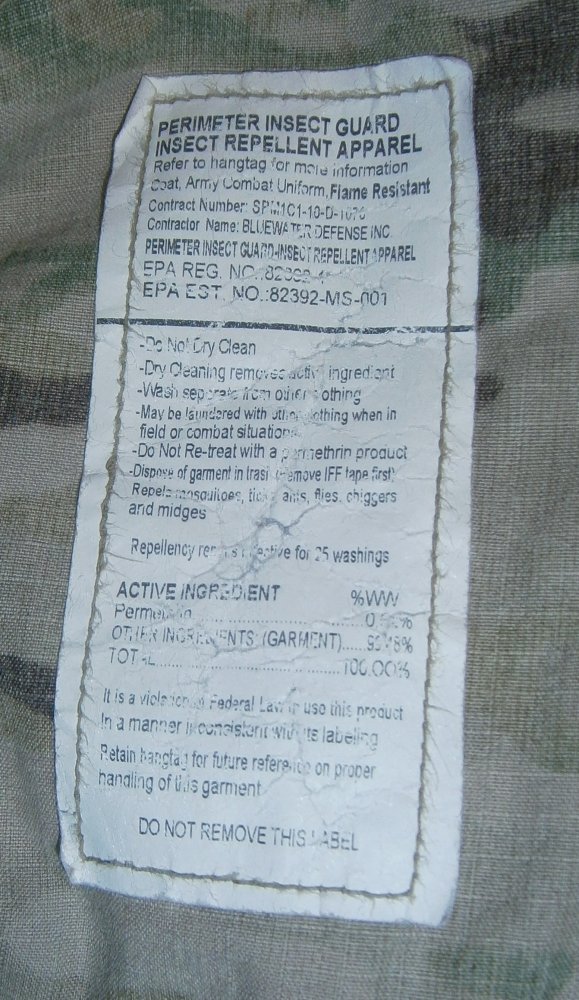 PERIMETER INSECT GUARD
INSECT REPELLENT APPAREL
Refer to hangtag for more information
Coat, Army Combat Uniform, Flame Resistant
Contract Number: SPM1C1-10-D-
Contractor Name: BLUEWATER DEFENSE INC.
PERIMETER INSECT GUARD-INSECT REPELLENT APPAREL
EPA REG. NO.:82392-
EPA EST. NO.:82392-MS-001
-Do Not Dry Clean
-Dry Cleaning removes active ingredient
-Wash seperate from other clothing
-May be laundered with other clothing when in
field or combat situations
-Do Not Re-treat with a permethrin product
-Dispose of garment in trash (remove IFF tape first)
Repels mosquitoes, ticks, ants, flies, chiggers
and midges
Repellency remains effective for 25 washings
ACTIVE INGREDIENT %WW
Permethrin %
OTHER INGREDIENTS: (GARMENT)
TOTAL 100.00%
It is a violation of Federal Law to use this product
In a manner inconsistent with its labeling
Retain hangtag for future reference on proper
handling of this garment
DO NOT REMOVE THIS LABEL